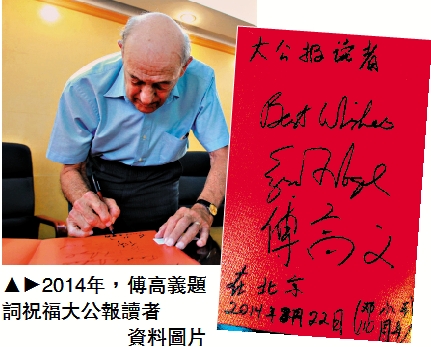 大公报读者
Best Wishes
Ezra F Vogel
傅高义
在北京
2014年8月22日（邓小
▲▶2014年，傅高義題
詞祝福大公報讀者
資料圖片